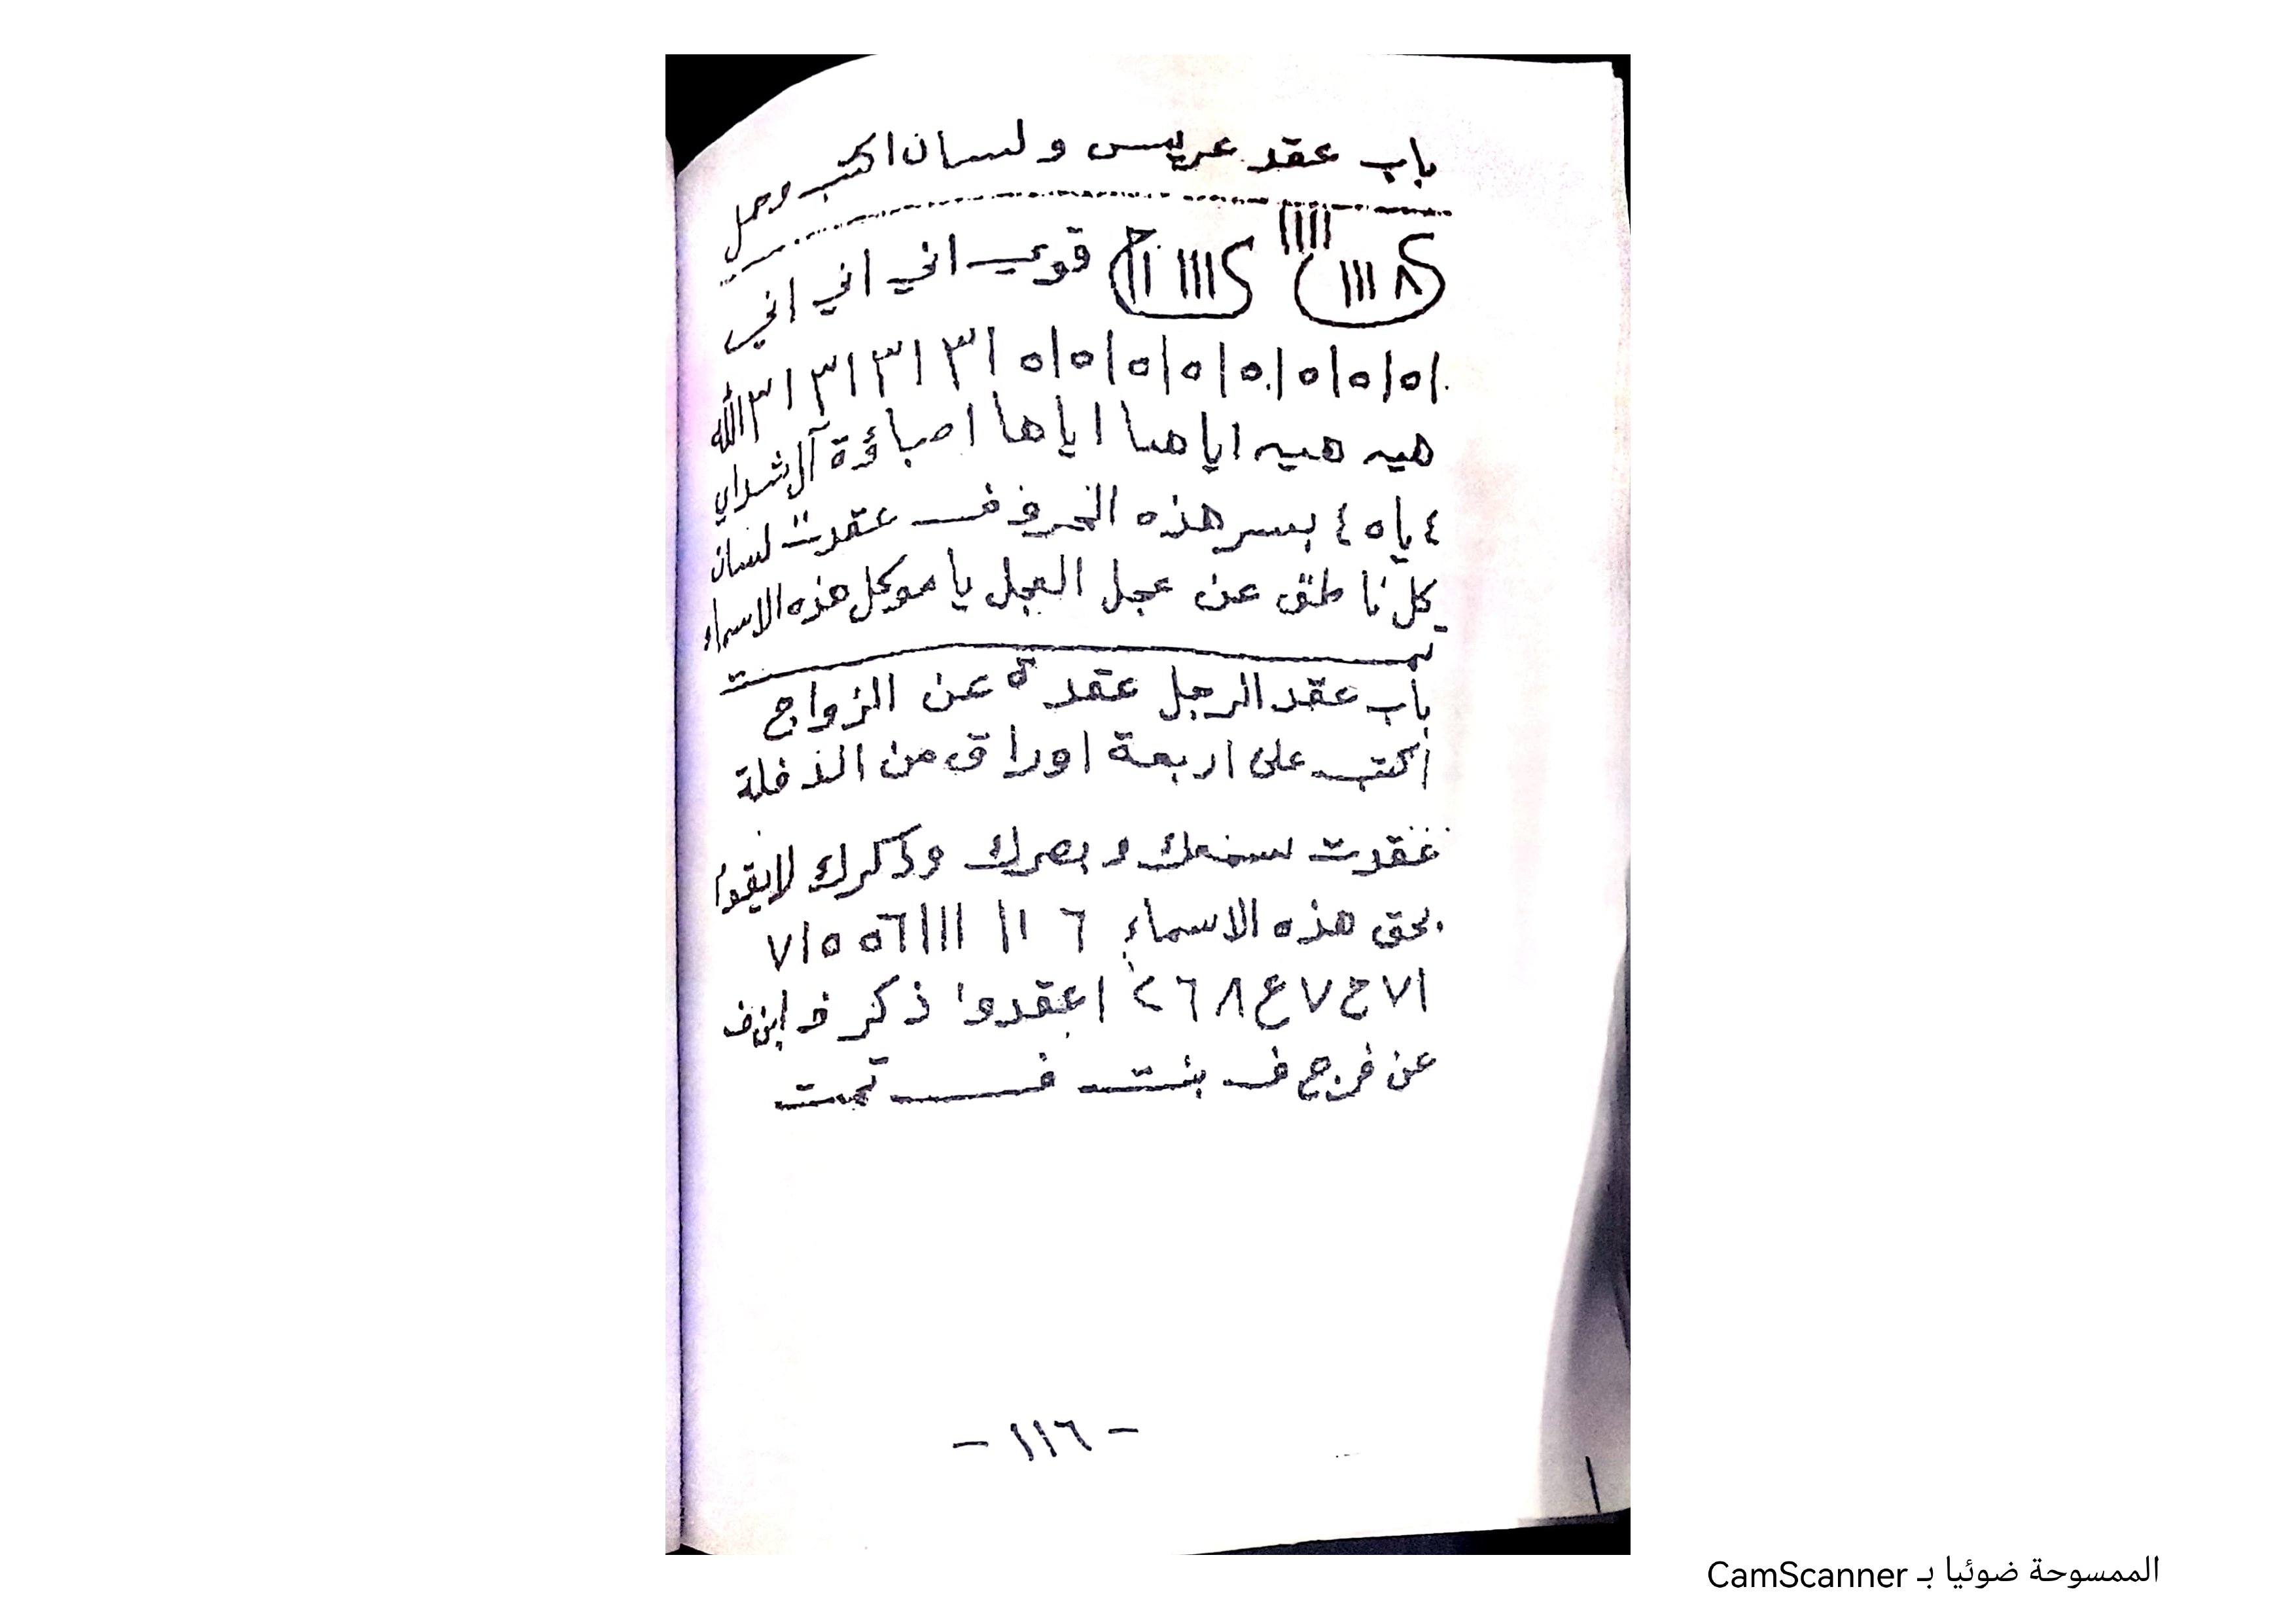 باب عقد عريس ولسان اكتب وحمل
قوي اني اني اني
١٥١٥١٥١٥١٥١٥١٥١٥ ٣١ ٣١ ٣١ ٣١ الله
هيه هيه اياها اياها اصباؤة آل شداي
٤ يا ٥ ٤ بسر هذه الحروف عقدت لسان
كل ناطق عن عجل العجل يا موكل هذه الاسماء
تمت
باب عقد الرجل عقدة عن الزواج
اكتب على اربعة اوراق من الذفلة
عقدت سمعك وبصرك وذكرك لايقوم
بحق هذه الاسماء ٦ ١١ ١١ ١١١١٦٥ ٥١٧
١٧٧ع٧ع٨٦ اعقدوا ذكر ف ابن ف
عن فرج ف بنت ف تمت
- ١١٦ -
الممسوحة ضوئيا بـ CamScanner